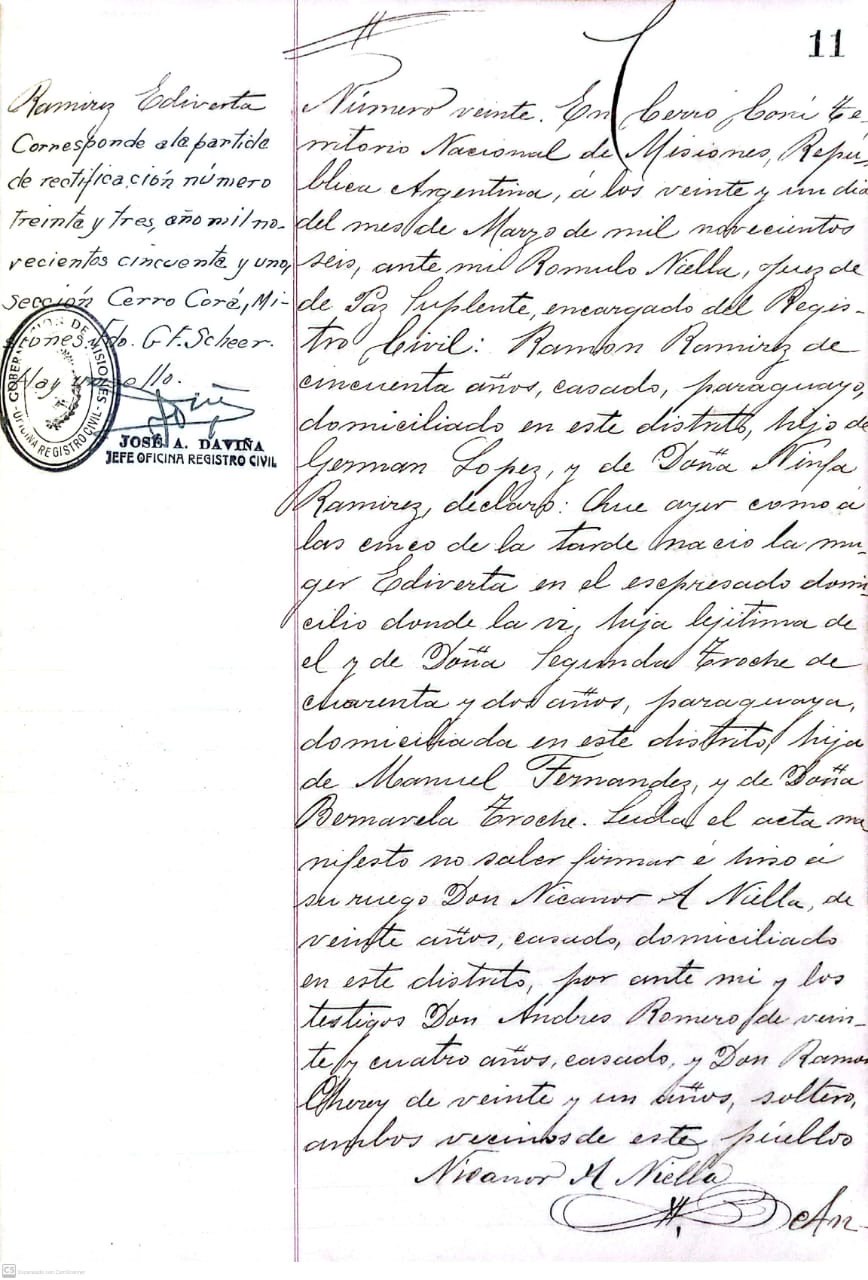 11
Ramirez Ediverta
Corresponde a la partida
de rectificación número
treinta y tres, año mil no-
vecientos cincuenta y uno,
sección Cerro Corá, Mi-
siones. Fdo. G F. Scheer.
Hay un sello.
GOBERNACION DE MISIONES
OFICINA REGISTRO CIVIL
JOSÉ A. DAVIÑA
JEFE OFICINA REGISTRO CIVIL
Número veinte. En Cerro Corá Te-
rritorio Nacional de Misiones, Repu-
blica Argentina, á los veinte y un dia
del mes de Marzo de mil novecientos
seis, ante mi Romulo Niella, Juez de
de Paz Suplente, encargado del Regis-
tro Civil: Ramon Ramirez de
cincuenta años, casado, paraguayo,
domiciliado en este distrito, hijo de
German Lopez, y de Doña Ninfa
Ramirez, declaro: Que ayer como á
las cinco de la tarde nacio la mu-
ger Ediverta en el espresado domi-
cilio donde la vi, hija lejitima de
el y de Doña Segunda Troche de
cuarenta y dos años, paraguaya,
domiciliada en este distrito, hija
de Manuel Fernandez, y de Doña
Bernavela Troche. Leida el acta ma
nifesto no saber firmar é hiso á
su ruego Don Nicanor A Niella, de
veinte años, casado, domiciliado
en este distrito, por ante mi y los
testigos Don Andres Romero de vein-
te y cuatro años, casado, y Don Ramon
de veinte y un años, soltero,
ambos vecinos de este pueblo
Nicanor A Niella
An-
CS Escaneado con CamScanner